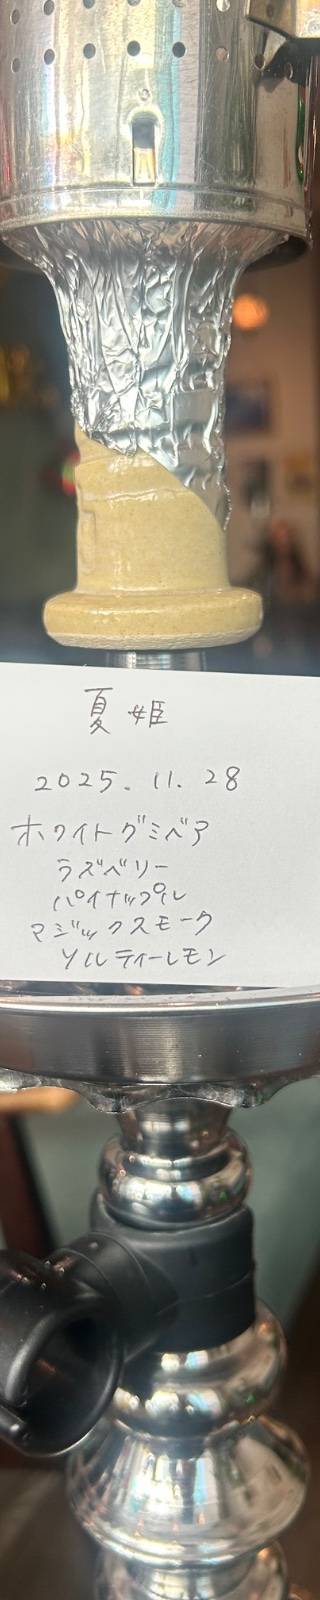 夏姫
2025. 11. 28
ホワイトグミベア
ラズベリー
パイナップル
マジックスモーク
ソルティーレモン